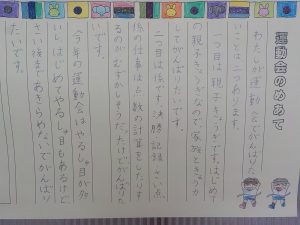 運動会のめあて
わたしが運動会でがんばりた
いことは二つあります。
一つ目は親子きょうぎです。はじめて
の親子きょうぎなので家族ときょう力
してがんばりたいです。
二つ目は係です。決勝記録、さい点
係の仕事は点数の計算をしたりす
るのがむずかしそうだったけどがんばりた
いです。
今年の運動会はやるしゅ目が多
いし、はじめてやるしゅ目もあるけど
さい後まであきらめないでがんばり
たいです。